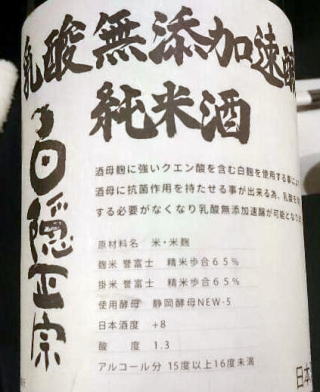 乳酸無添加速醸
純米酒
白隠正宗
酒母麹に強いクエン酸を含む白麹を使用する事に
酒母に抗菌作用を持たせる事が出来る為、乳酸を
する必要がなくなり乳酸無添加速醸が可能となり
原材料名 米・米麹
麹米 誉富士 精米歩合65%
掛米 誉富士 精米歩合65%
使用酵母 静岡酵母NEW-5
日本酒度 +8
酸度 1.3
アルコール分 15度以上16度未満
日本